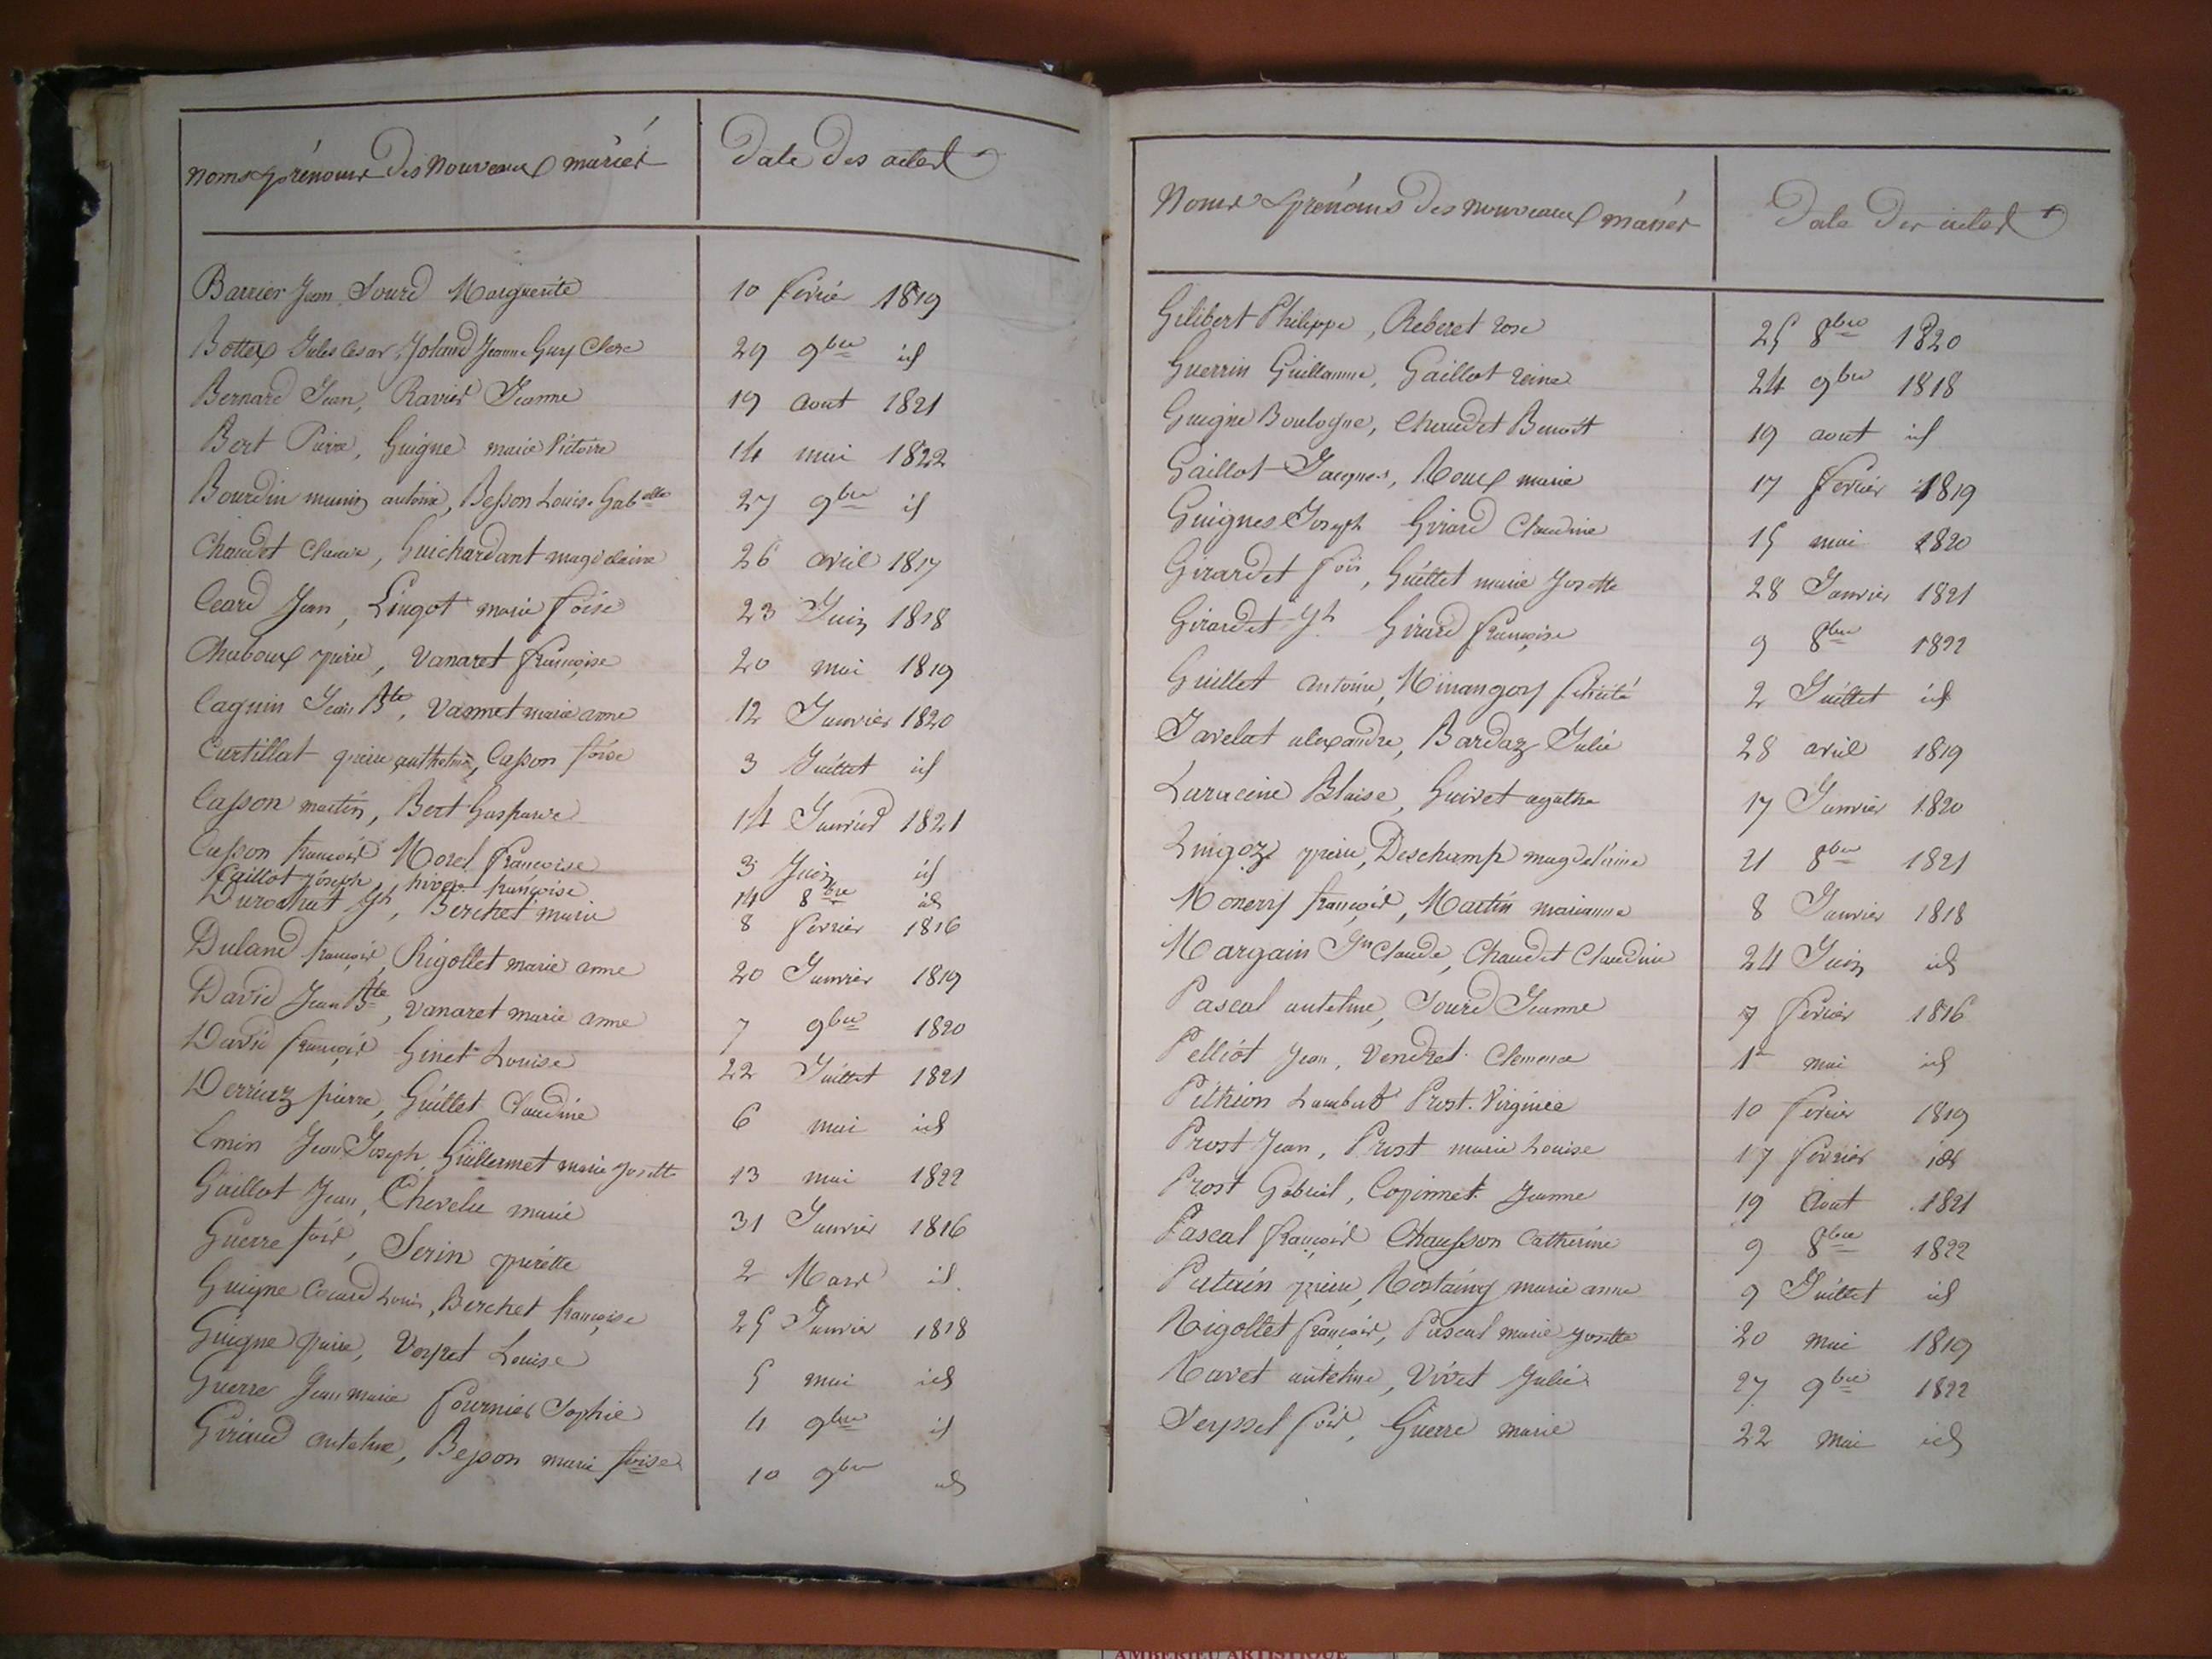 Noms & prénoms des nouveaux mariés
Date des actes
Barrier Jean Sourd Marguerite 10 fevrier 1819
Bottex Jules Cesar, Joland Jeanne Guy Clere 29 9bre id
Bernard Jean, Ravier Jeanne 19 aout 1821
Bert Pierre, Guigne marie Victoire 14 mai 1822
Bourdin antoine, Besson Louise Gabelle 27 9bre id
Chaudet Claude, Guichardant magdelaine 26 avril 1817
Ceard Jean, Lingot marie foise 23 Juin 1818
Chaboux pierre, Vanaret françoise 20 mai 1819
Caguin Jean Bte, Vasmet marie anne 12 Janvier 1820
Curtillat pierre anthelme, Casson foise 3 Juillet id
Casson martin, Bert Gasparde 14 Janvier 1821
Casson françois Morel françoise 3 Juin id
Caillot joseph, françoise 14 8bre id
Durochat Jh, Berchet marie 8 fevrier 1816
Duland françois, Rigollet marie anne 20 Janvier 1819
David Jean Bte, Vanaret marie anne 7 9bre 1820
David françois Ginet Louise 22 Juillet 1821
Derriaz pierre, Guillet Claudine 6 mai id
Emin Jean Joseph, Guillermet marie josette 13 mai 1822
Gaillot Jean, Chevelu marie 31 Janvier 1816
Guerre fois, Serin pierrette 2 Mars id
Guigne Louis, Berchet françoise 25 Janvier 1818
Guigne pierre, Verpet Louise 5 mai id
Guerre Jean marie fournier Sophie 4 9bre id
Giriaud antelme, Besson marie foise 10 9bre id
Noms & prénoms des nouveaux mariés
Date des actes
Gilibert Philippe, Reberet rose 25 8bre 1820
Guerrin Guillaume, Gaillot reine 24 9bre 1818
Guigne Boulogne, Chaudet Benoit 19 aout id
Gaillot Jacques, Roux marie 17 fevrier 1819
Guignes Joseph Girard Claudine 15 mai 1820
Girardet fois, Guillet marie Josette 28 Janvier 1821
Girardet Jh Girard françoise 9 8bre 1822
Guillet antoine, Minangoy felicité 2 Juillet id
Javelot alexandre, Bardaz Julie 28 avril 1819
Laracine Blaise, Guivet agathe 17 Janvier 1820
Lingoz pierre, Deschamp magdelaine 21 8bre 1821
Monery françois, Martin marianne 8 Janvier 1818
Margain Jn Claude, Chaudet Claudine 24 Juin id
Pascal antelme, Sourd Jeanne 7 fevrier 1816
Pelliot Jean, Vendret Clemence 1er mai id
Pithion Lambert Prost Virginie 10 fevrier 1819
Prost Jean, Prost marie Louise 17 fevrier id
Prost Gabriel, Copinnet Jeanne 19 Aout 1821
Pascal françois Chausson Catherine 9 8bre 1822
Putain pierre, Rostaing marie anne 9 Juillet id
Rigollet françois, Pascal marie josette 20 mai 1819
Ravet antelme, Vivet Julie 27 9bre 1822
Seyssel fois, Guerre marie 22 mai id
AMBERIEU ARTISTIQUE